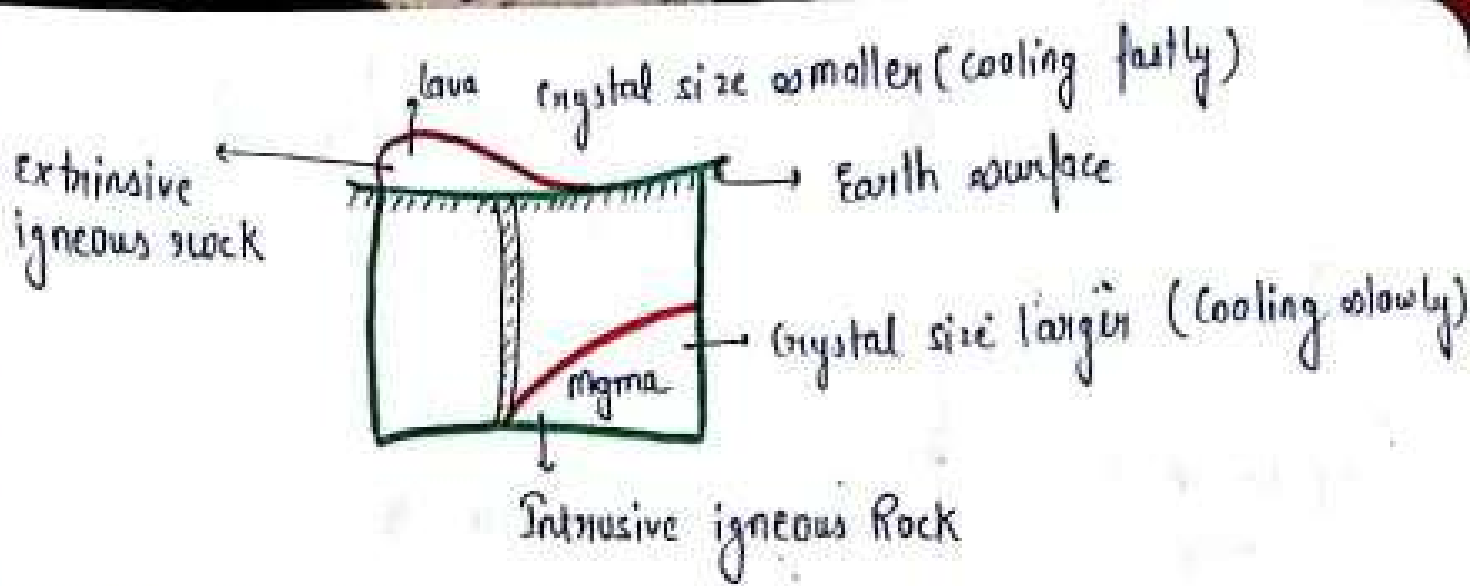 lava
Crystal size smaller (cooling fastly)
Extrinsive
igneous rock
Earth surface
Crystal size larger (Cooling slowly)
Mgma
Intrusive igneous Rock